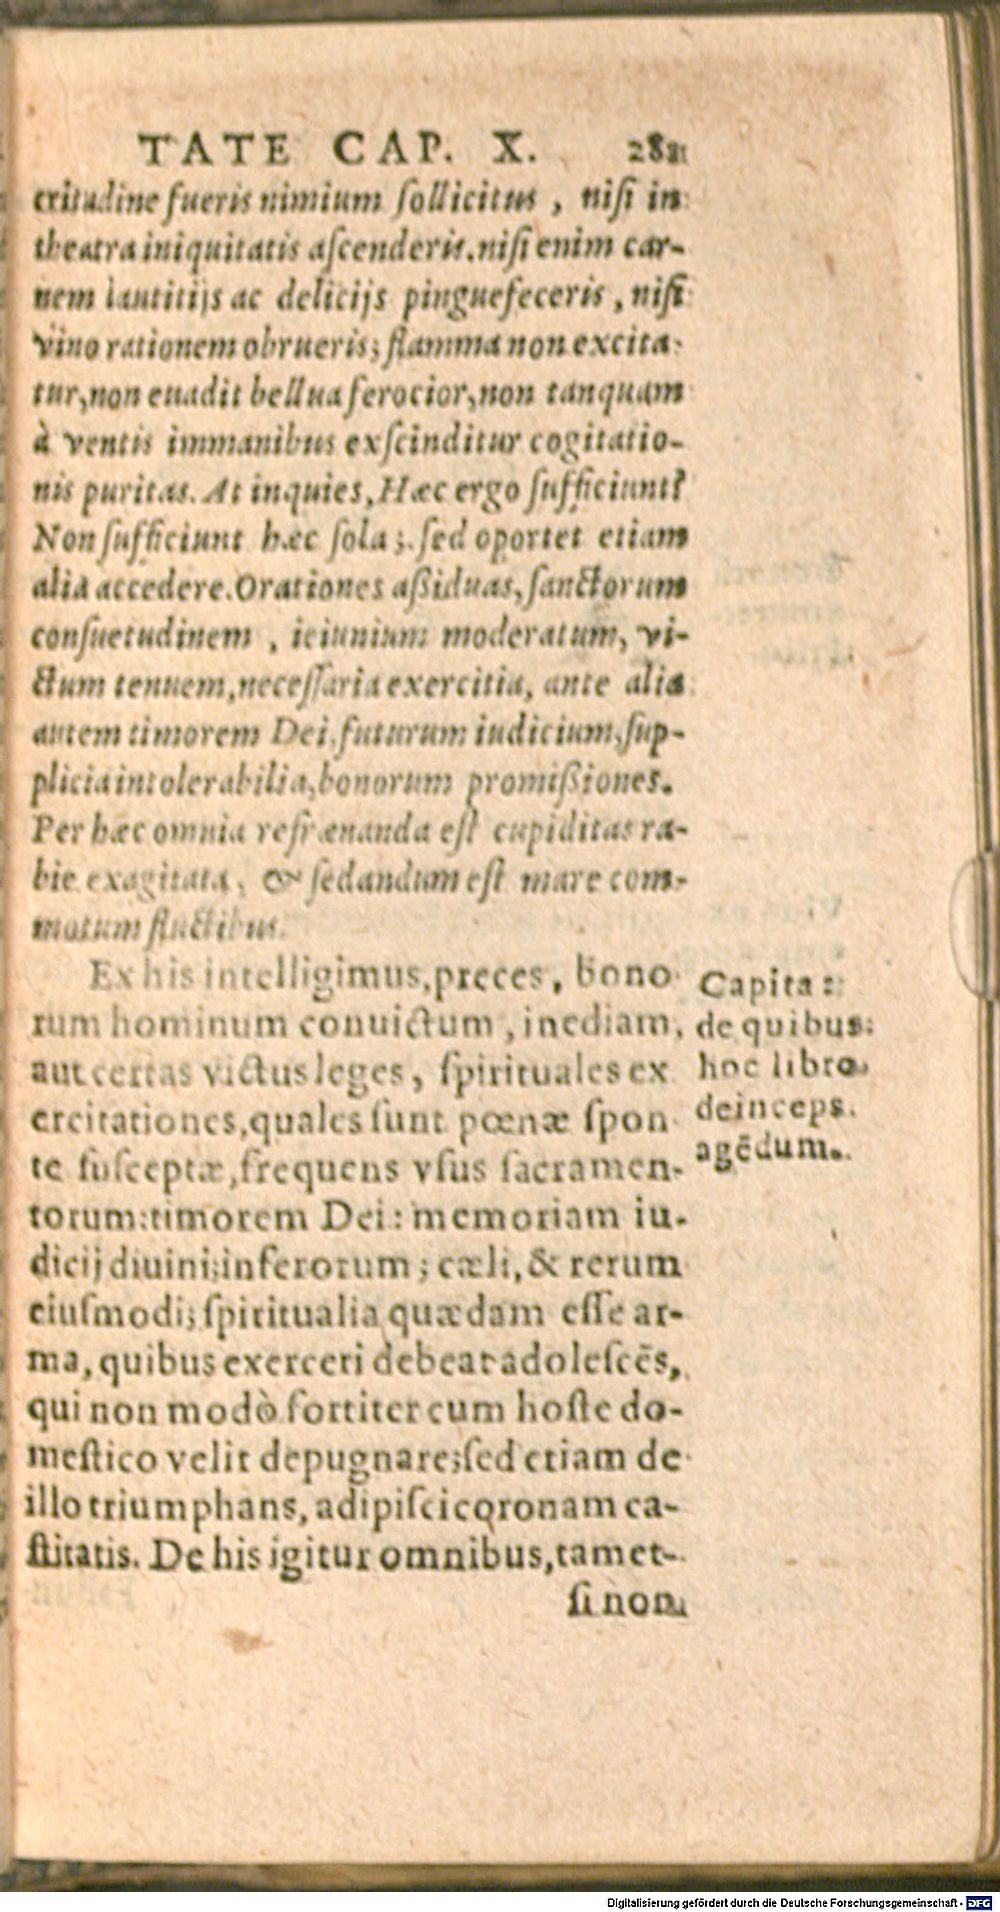 TATE CAP. X. 281
critudine fueris nimium ſollicitus, niſi in
theatra iniquitatis aſcenderis. niſi enim car-
nem lautitijs ac delicijs pinguefeceris, niſi
vino rationem obrueris; flamma non excita-
tur, non euadit bellua ferocior, non tanquam
à ventis immanibus exſcinditur cogitatio-
nis puritas. At inquies, Hæc ergo ſufficiunt?
Non ſufficiunt hæc ſola; ſed oportet etiam
alia accedere. Orationes aßiduas, ſanctorum
conſuetudinem, ieiunium moderatum, vi-
ctum tenuem, neceſſaria exercitia, ante alia
autem timorem Dei, futurum iudicium, ſup-
plicia intolerabilia, bonorum promißiones.
Per hæc omnia refrænanda eſt cupiditas ra-
bie exagitata, & ſedandum eſt mare com-
motum fluctibus.
Ex his intelligimus, preces, bono
rum hominum conuictum, inediam,
aut certas victus leges, ſpirituales ex
ercitationes, quales ſunt pœnæ ſpon-
te ſuſceptæ, frequens vſus ſacramen-
torum: timorem Dei: memoriam iu-
dicij diuini; inferorum; cæli, & rerum
eiuſmodi; ſpiritualia quædam eſſe ar-
ma, quibus exerceri debeat adoleſcēs,
qui non modò fortiter cum hoſte do-
meſtico velit depugnare; ſed etiam de
illo triumphans, adipiſci coronam ca-
ſtitatis. De his igitur omnibus, tamet-
ſi non
Capita
de quibus
hoc libro
deinceps
agēdum.
Digitalisierung gefördert durch die Deutsche Forschungsgemeinschaft - DFG